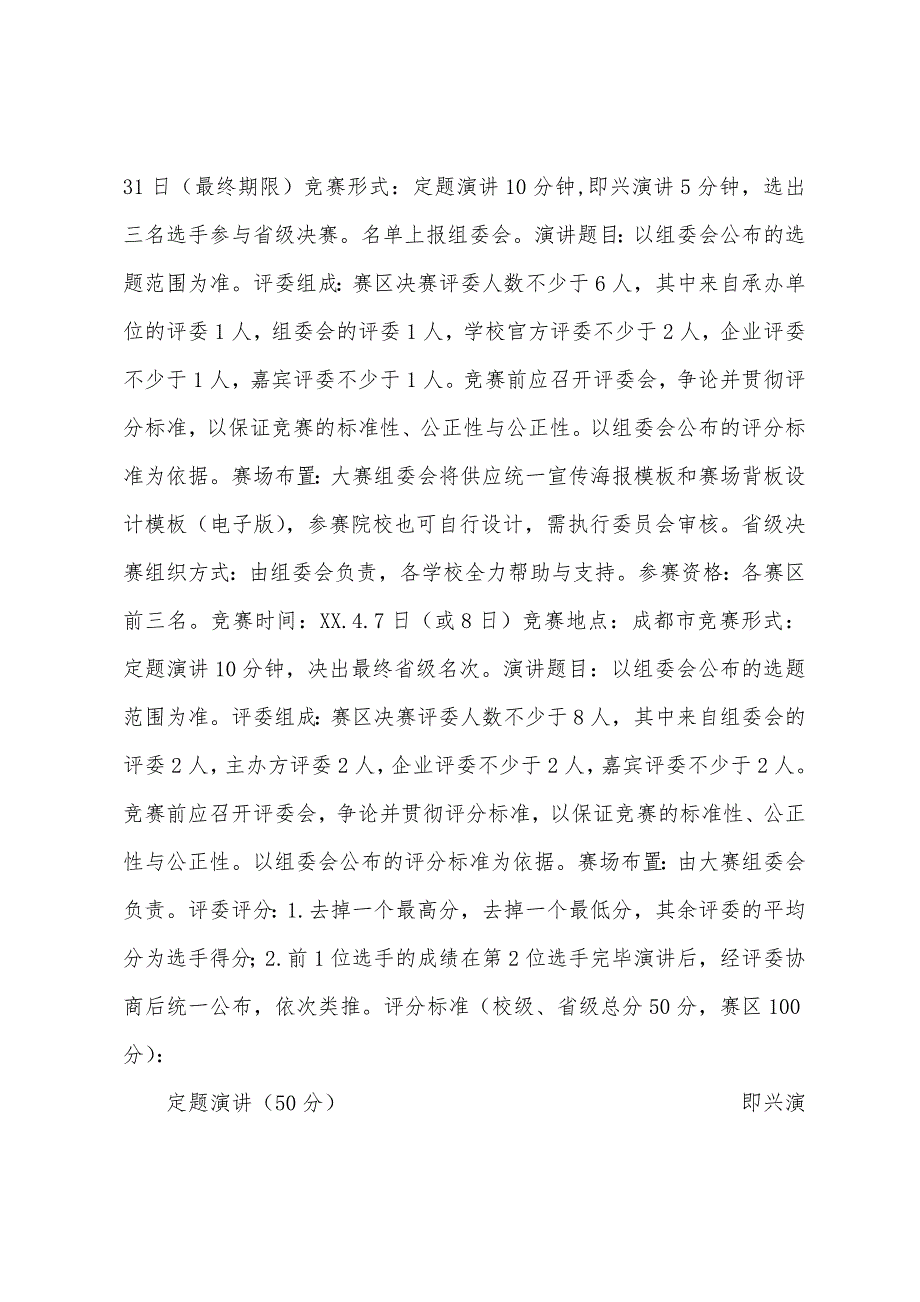 31日（最终期限）竞赛形式：定题演讲10分钟,即兴演讲5分钟，选出
三名选手参与省级决赛。名单上报组委会。演讲题目：以组委会公布的选
题范围为准。评委组成：赛区决赛评委人数不少于6人，其中来自承办单
位的评委1人，组委会的评委1人，学校官方评委不少于2人，企业评委
不少于1人，嘉宾评委不少于1人。竞赛前应召开评委会，争论并贯彻评
分标准，以保证竞赛的标准性、公正性与公正性。以组委会公布的评分标
准为依据。赛场布置：大赛组委会将供应统一宣传海报模板和赛场背板设
计模板（电子版），参赛院校也可自行设计，需执行委员会审核。省级决
赛组织方式：由组委会负责，各学校全力帮助与支持。参赛资格：各赛区
前三名。竞赛时间：XX.4.7日（或8日）竞赛地点：成都市竞赛形式：
定题演讲10分钟，决出最终省级名次。演讲题目：以组委会公布的选题
范围为准。评委组成：赛区决赛评委人数不少于8人，其中来自组委会的
评委2人，主办方评委2人，企业评委不少于2人，嘉宾评委不少于2人。
竞赛前应召开评委会，争论并贯彻评分标准，以保证竞赛的标准性、公正
性与公正性。以组委会公布的评分标准为依据。赛场布置：由大赛组委会
负责。评委评分：1.去掉一个最高分，去掉一个最低分，其余评委的平均
分为选手得分；2.前1位选手的成绩在第2位选手完毕演讲后，经评委协
商后统一公布，依次类推。评分标准（校级、省级总分50分，赛区100
分）：
定题演讲（50分） 即兴演